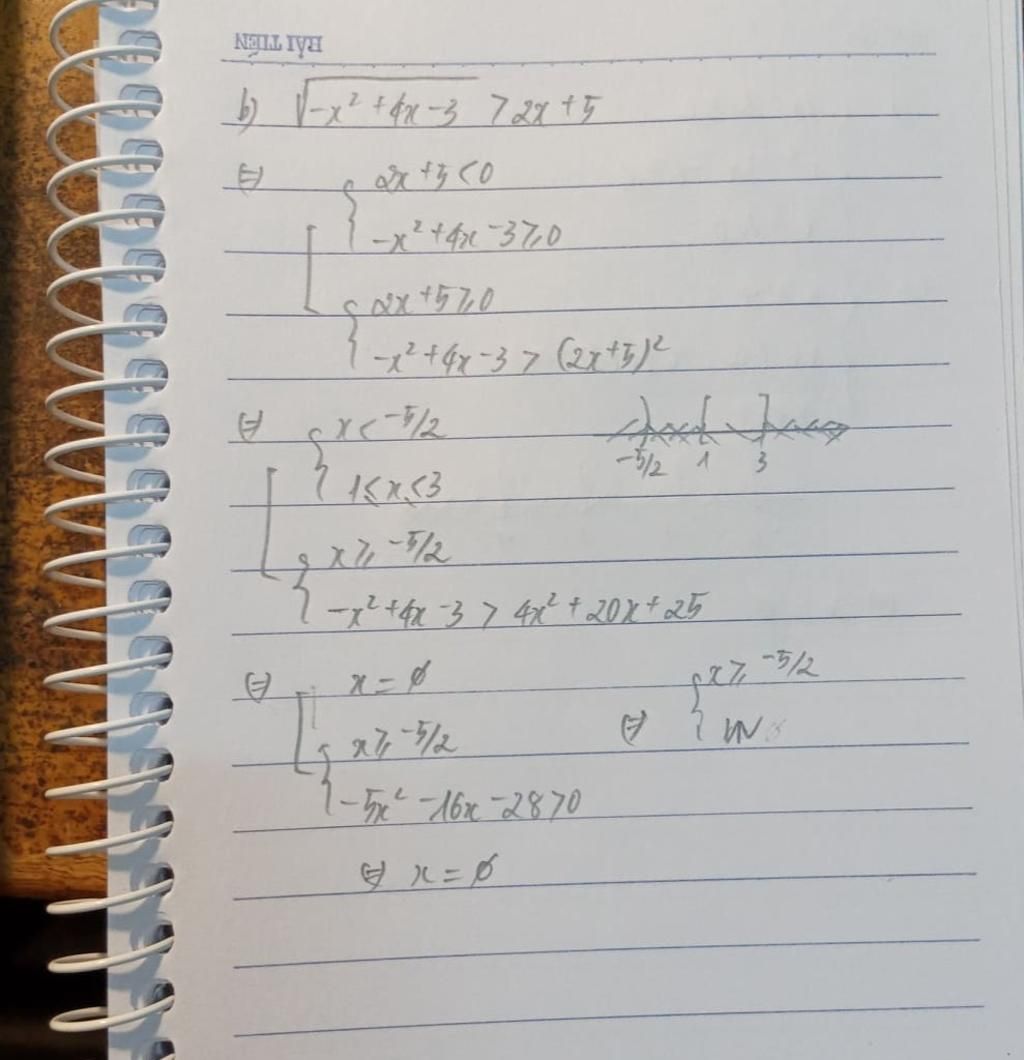 HẢI TIẾN
b) √(-x² + 4x - 3) > 2x + 5
⇔ [ { 2x + 5 < 0
-x² + 4x - 3 ≥ 0
{ 2x + 5 ≥ 0
-x² + 4x - 3 > (2x+5)²
⇔ [ { x < -5/2
1 ≤ x ≤ 3
-5/2 1 3
{ x ≥ -5/2
-x² + 4x - 3 > 4x² + 20x + 25
⇔ [ x = ∅
{ x ≥ -5/2
-5x² - 16x - 28 > 0
⇔ { x ≥ -5/2
VN
⇔ x = ∅